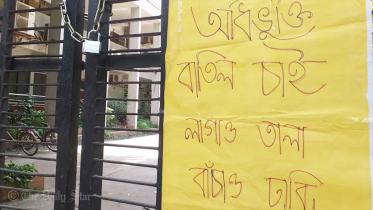 অধিভুক্তি
বাতিল চাই
লাগাও তালা
বাঁচাও ঢাবি
© The Daily Star